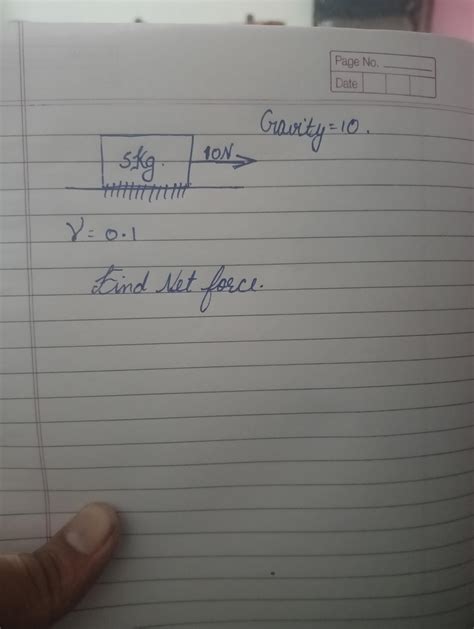 Page No.
Date
Gravity=10.
5Kg.
10N
γ=0.1
Find Net force.